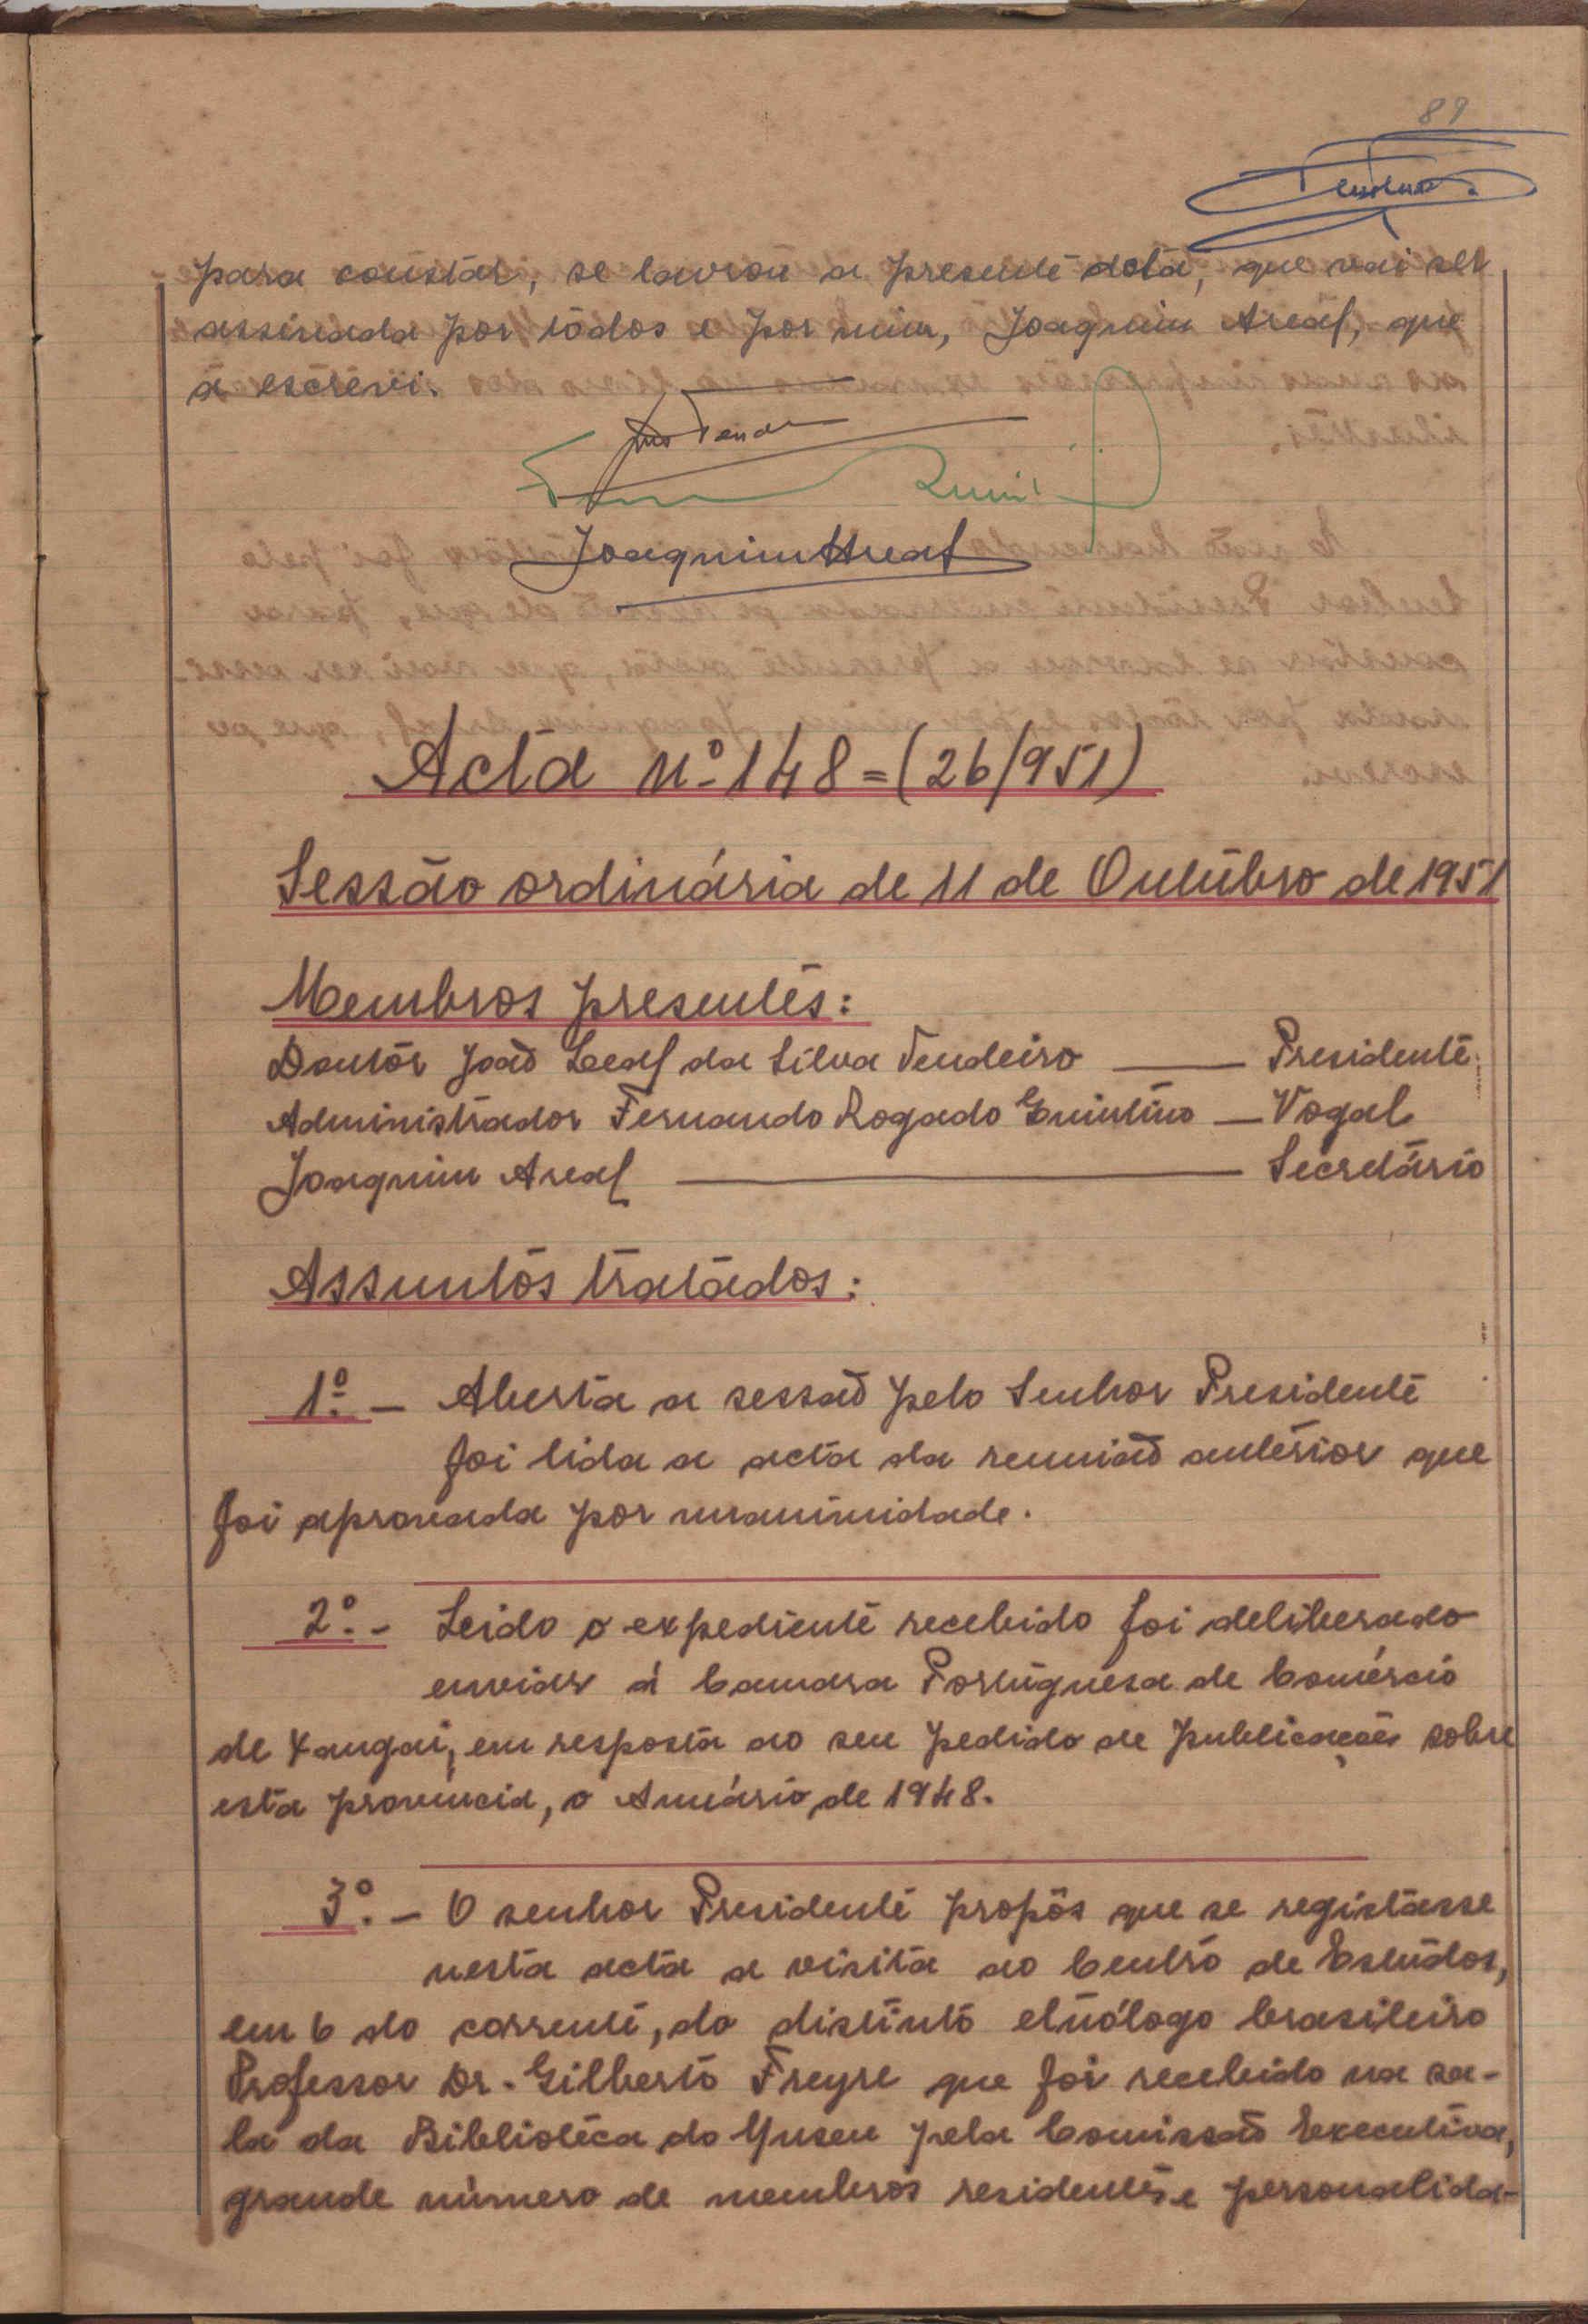 89
Tendeiro.
para constar, se lavrou a presente acta, que vai ser
assinada por todos e por mim, Joaquim Areal, que
a escrevi.
Joaquim Areal
Acta nº 148 = (26/951)
Sessão ordinária de 11 de Outubro de 1951
Membros presentes:
Doutor João Leal da Silva Tendeiro — Presidente
Administrador Fernando Rogado Quintino — Vogal
Joaquim Areal — Secretário
Assuntos tratados:
1º. — Aberta a sessão pelo Senhor Presidente
foi lida a acta da reunião anterior que
foi aprovada por unanimidade.
2º. - Leido o expediente recebido foi deliberado
enviar á Camara Portuguesa de Comércio
de Xangai, em resposta ao seu pedido de publicações sobre
esta provincia, o Anuário de 1948.
3º. — O senhor Presidente propôs que se registasse
nesta acta a visita ao Centro de Estudos,
em 6 do corrente, do distinto etnólogo brasileiro
Professor Dr. Gilberto Freyre que foi recebido na sa-
la da Biblioteca do Museu pela Comissão Executiva,
grande número de membros residentes e personalida-